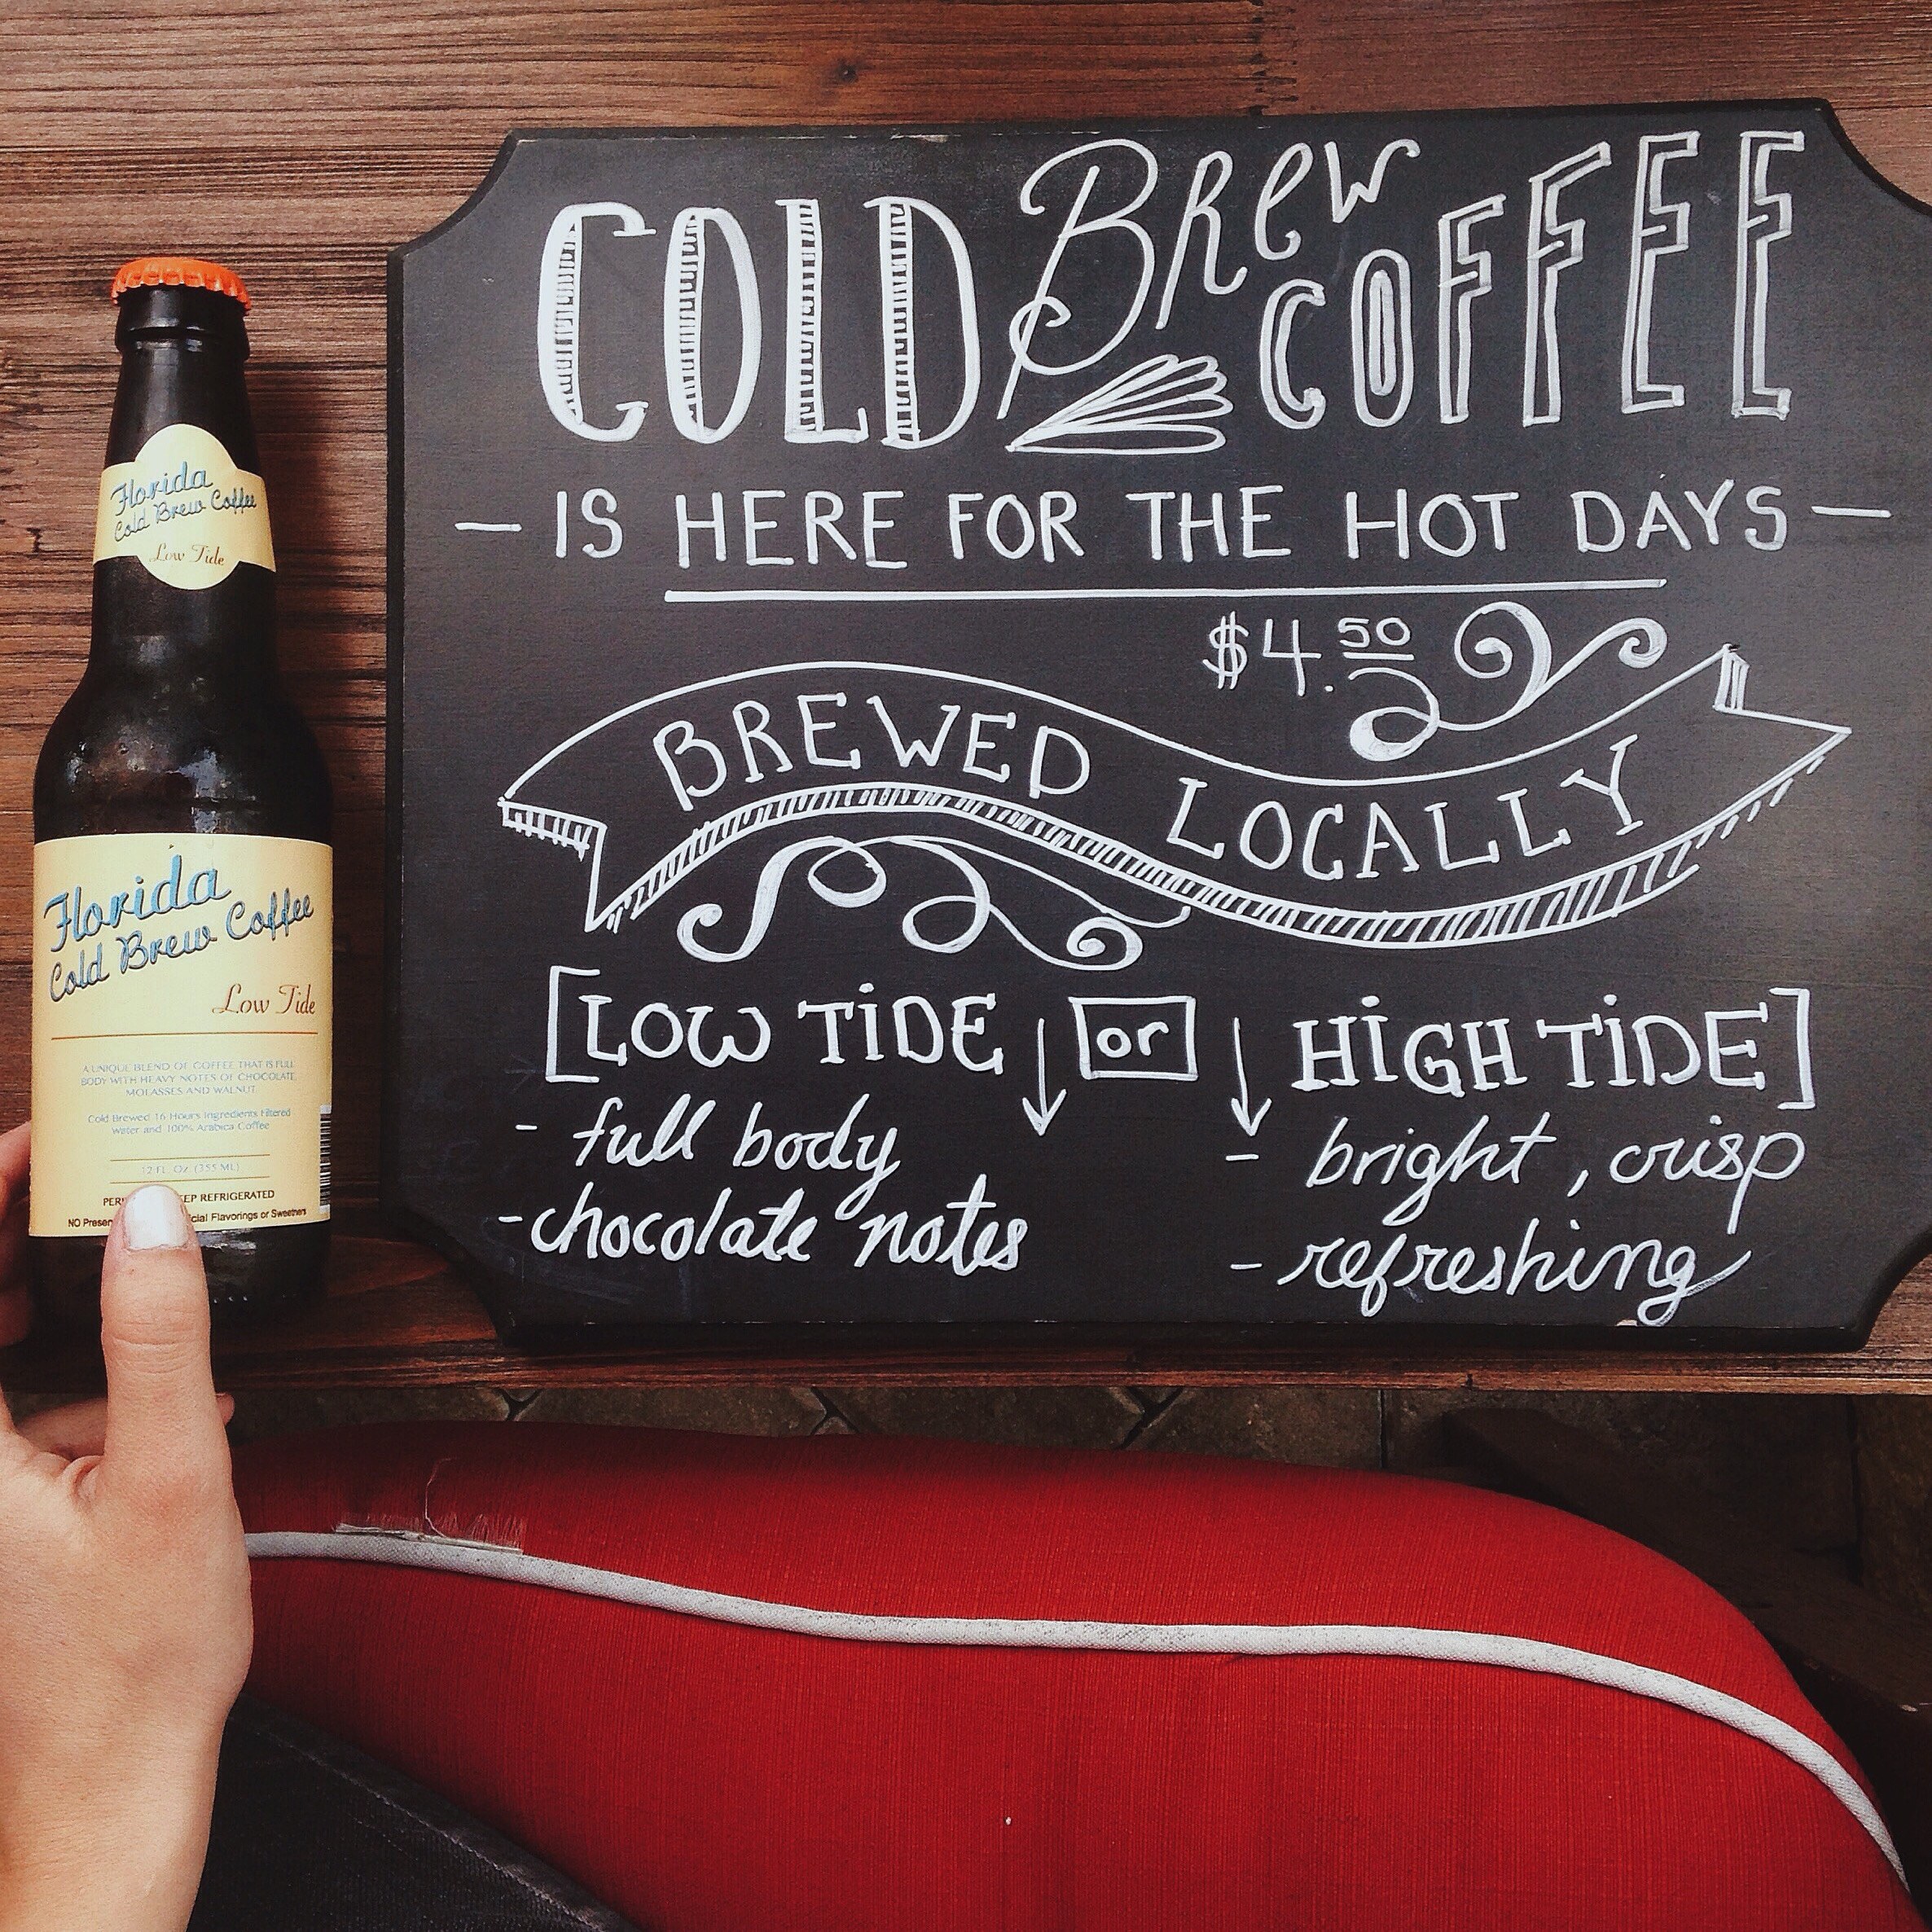 Florida
Cold Brew Coffee
Low Tide
Florida
Cold Brew Coffee
Low Tide
A UNIQUE BLEND OF COFFEE THAT IS FULL
BODY WITH HEAVY NOTES OF CHOCOLATE,
MOLASSES AND WALNUT.
Cold Brewed 16 Hours Ingredients Filtered
Water and 100% Arabica Coffee
12 FL. OZ. (355 ML)
REFRIGERATED
NO Flavorings or Sweetners
COLD Brew COFFEE
— IS HERE FOR THE HOT DAYS —
$4.50
BREWED LOCALLY
[LOW TIDE or HIGH TIDE]
- full body
- chocolate notes
- bright, crisp
- refreshing